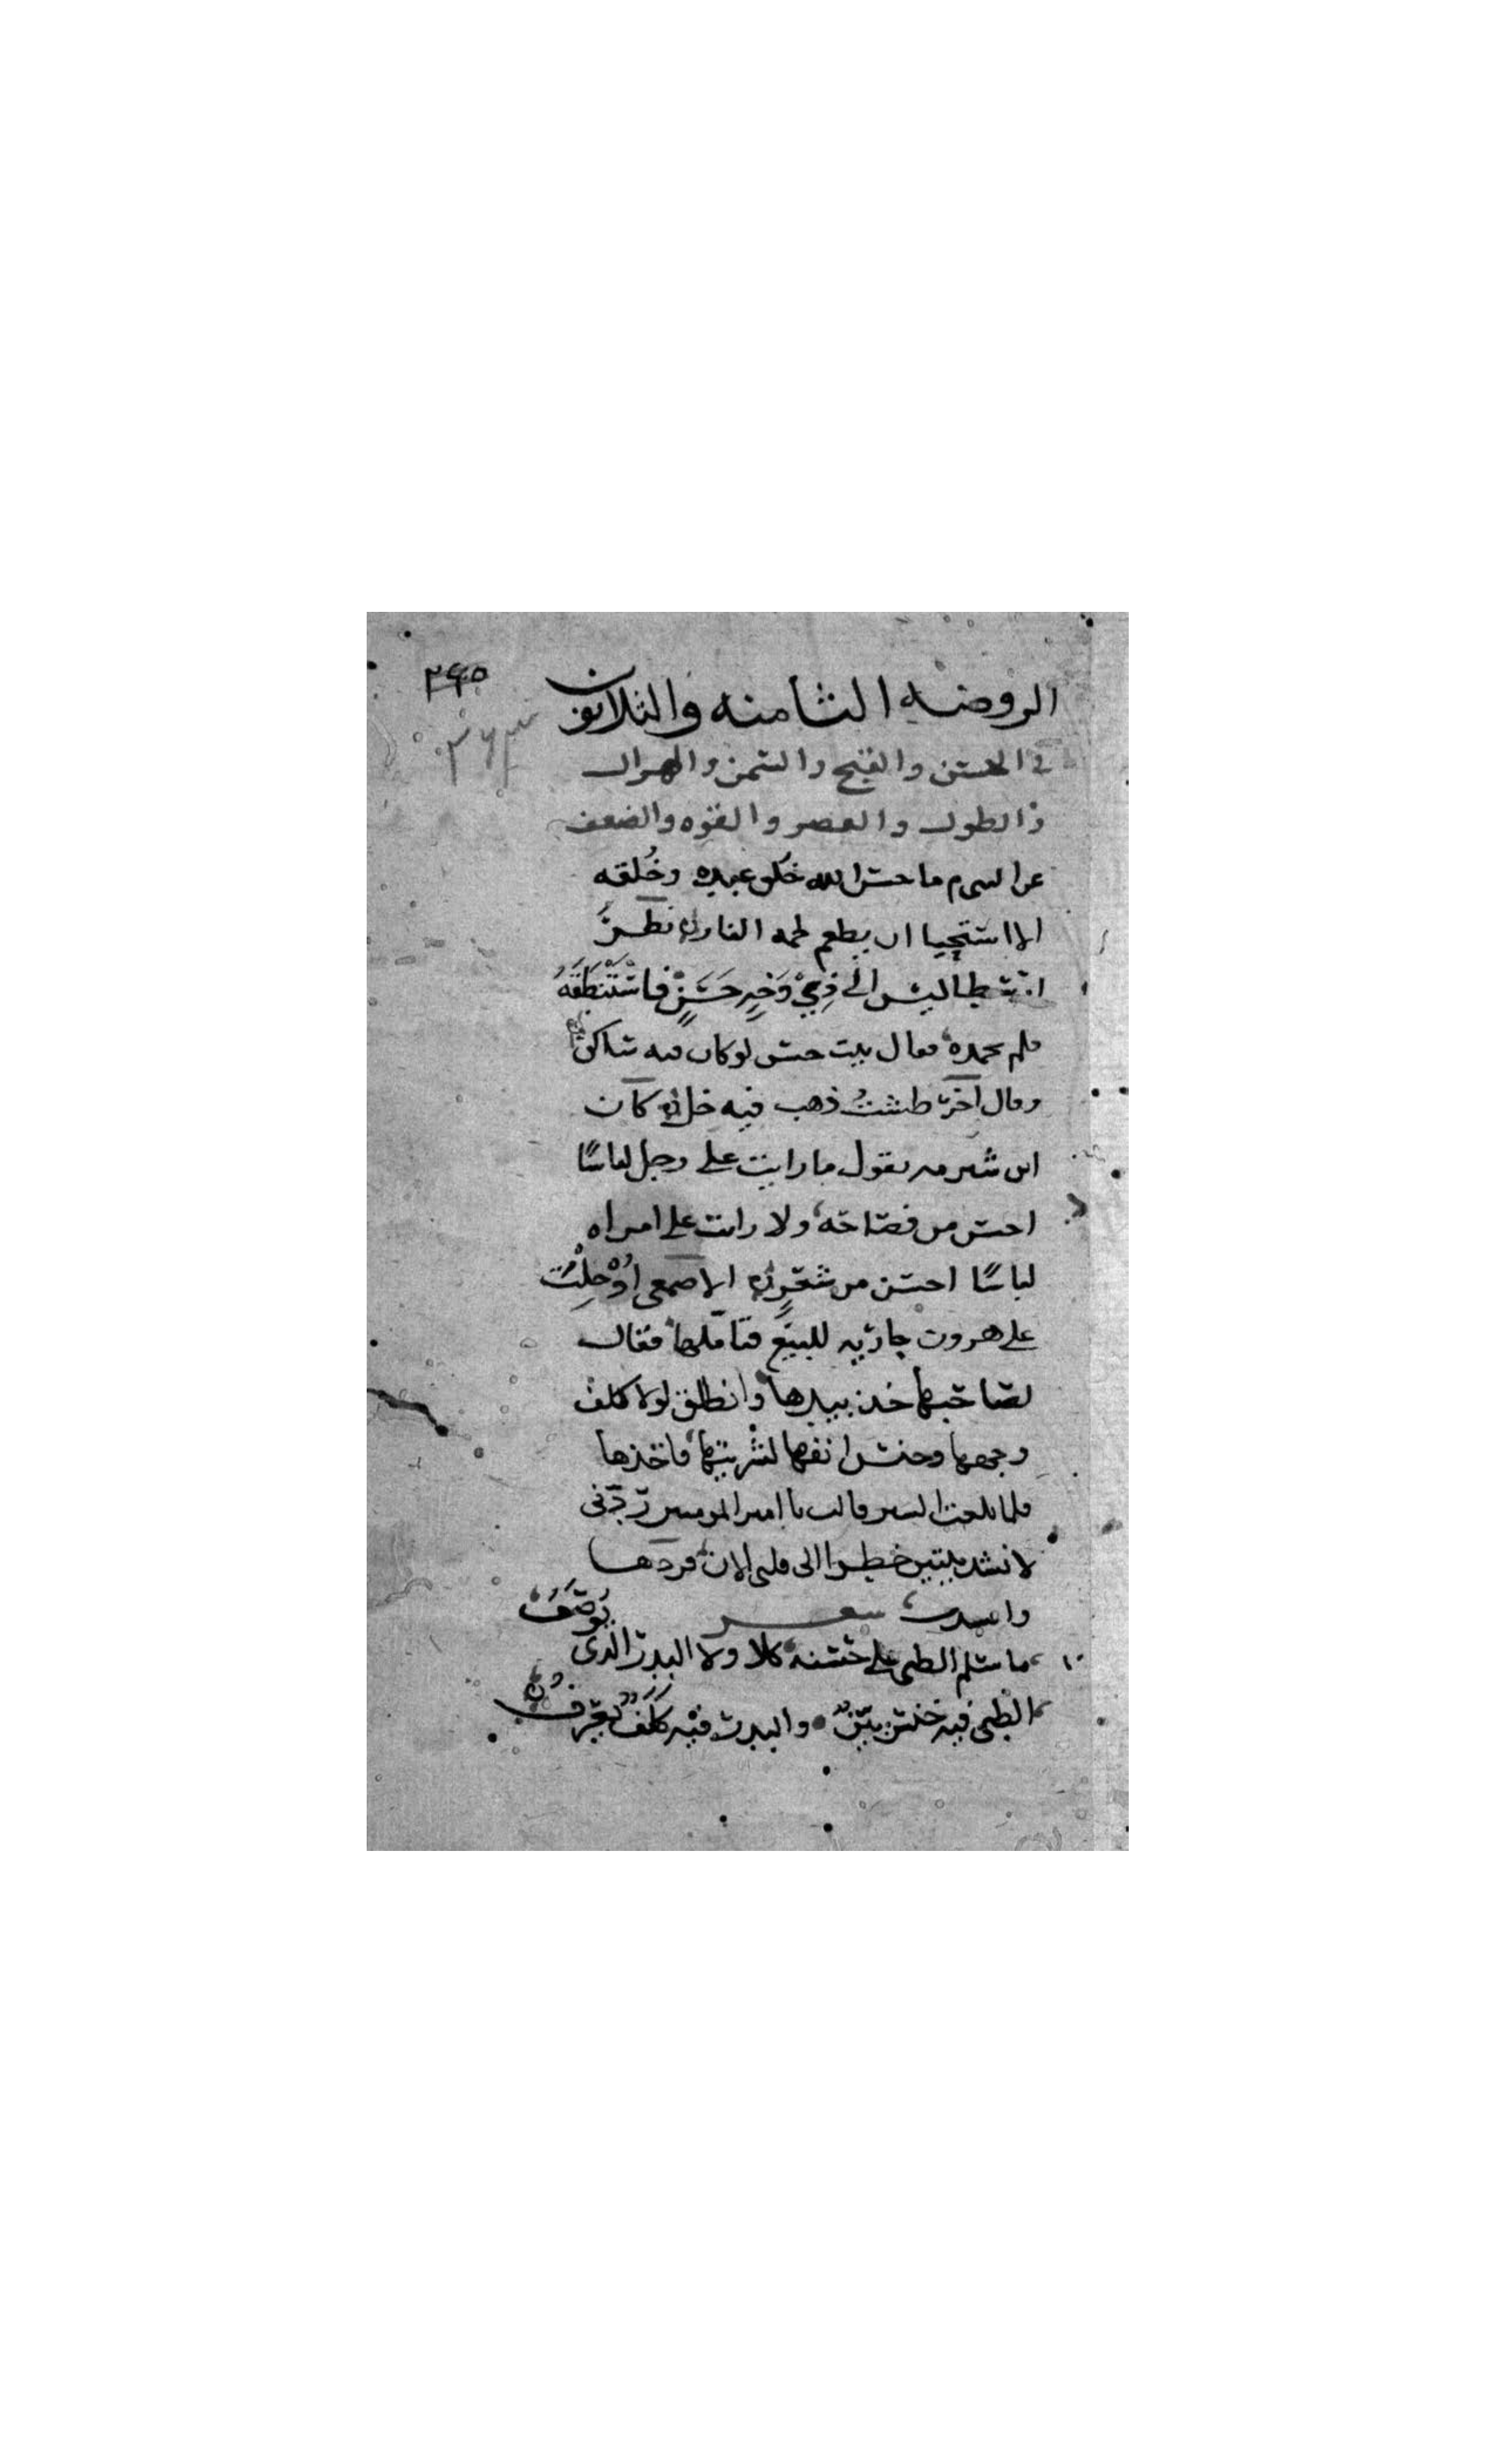 ٢٩٥
الروضه الثامنه والثلاثون
٢٩٣
في الحسن والقبح والسمن والهزال
والطول والقصر والقوه والضعف
عن النبي م ما حسن الله خلق عبده وخُلقه
الا استحيا ان يطعم لحمه النار نظر
ارسطاليس الى ذي وَجْهٍ حَسَنٍ فاسْتَنْطَقَهُ
فلم يحمده فقال بيت حسن لو كان فيه ساكن
وقال آخر طستُ ذهب فيه خل كان
ابن شبرمه يقول ما رايت على رجل لباسًا
احسن من فصاحه ولا رايت على امراه
لباسًا احسن من شحمٍ الاصمعي
على هرون جاريه للبيع فتاملها فقال
لصاحبها خذ بيدها وانطلق لولا كلف
وجهها وخنس انفها لشريتها فاخذها
فلما بلغت الستر قالت يا امير المومنين ردني
لانشد بيتين خطرا الى قلبي الان فردها
وانشدت شعر
ما سلم الظبي على حسنه كلا ولا البدر الذي يُوصَفُ
الظبي فيه خنس بيّنٌ والبدر فيه كَلَفٌ يُعرفُ